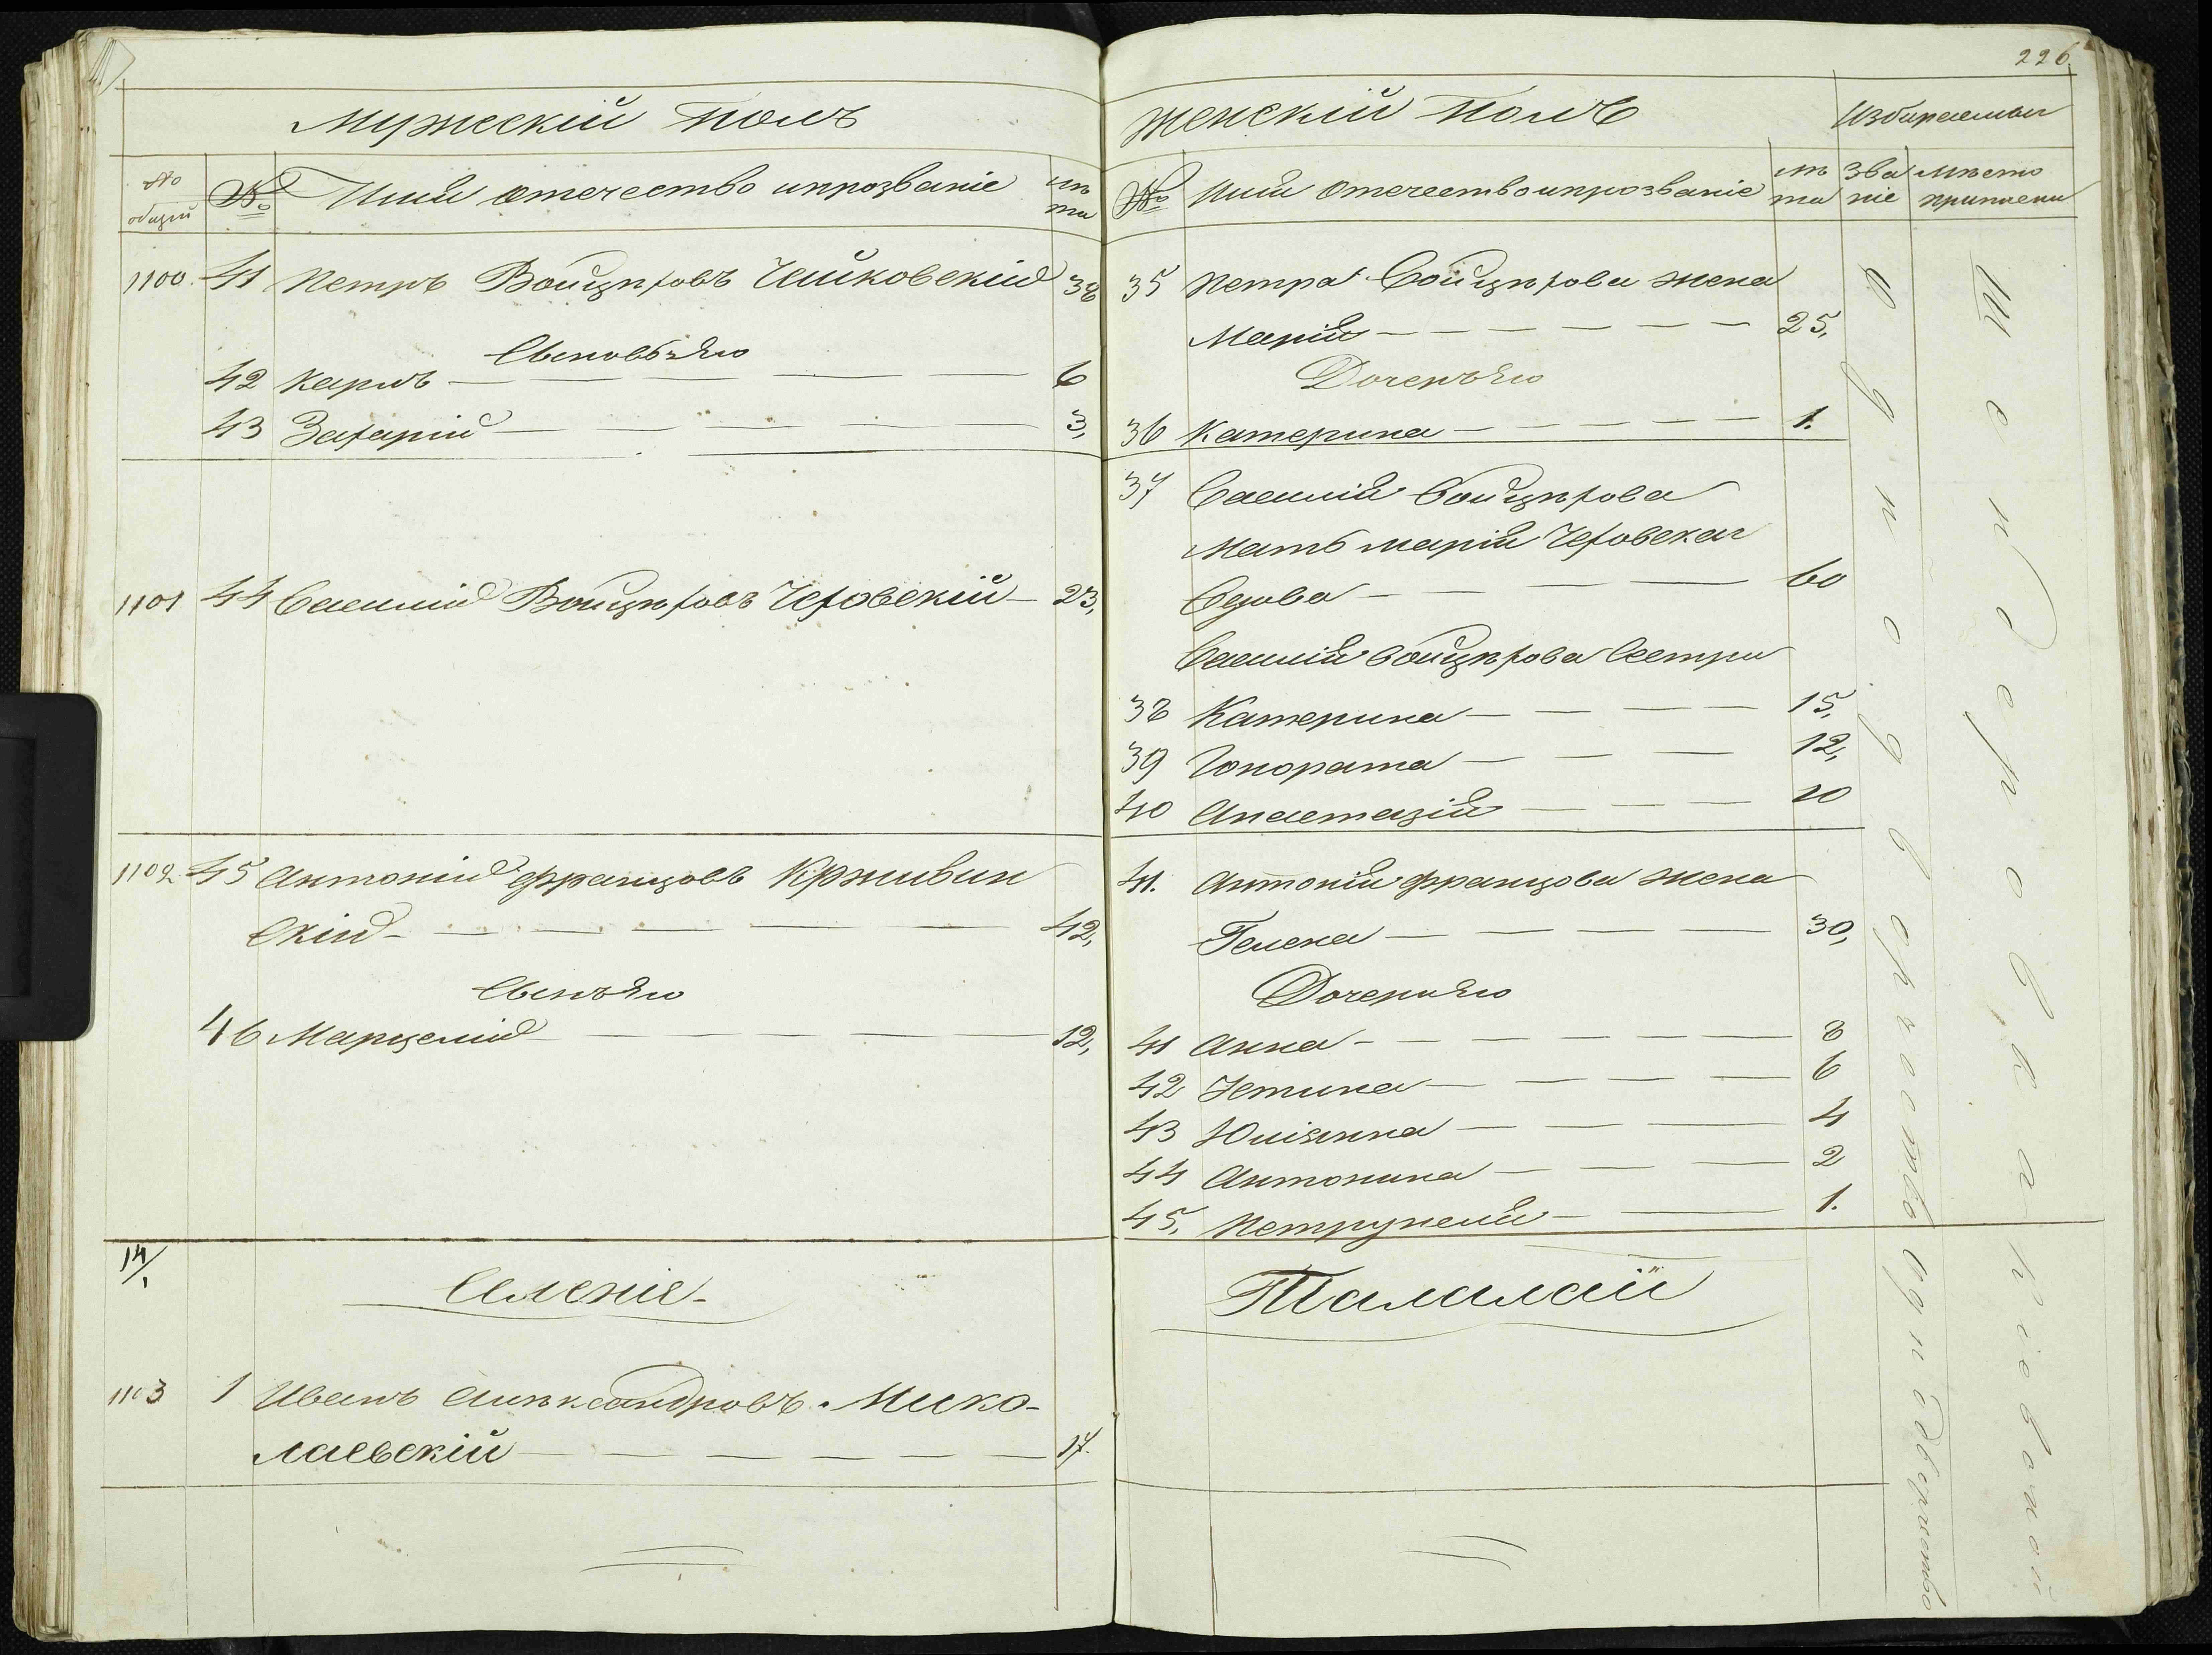 226
Мужескій полъ
№ общій
№
Имя отечество и прозваніе
лѣта
1100 41 Петръ Войцѣховъ Чайковскій 38
Сыновья его
42 Карлъ 6
43 Захарій 3,
1101 44 Василій Войцѣховъ Чеховскій 23,
1102 45 Антоній Францовъ Крживин
скій 42,
Сынъ его
46 Марцелій 12,
14/1
Селеніе
1103 1 Иванъ Александровъ Мико-
лаевскій 17.
Женскій полъ
Избираемыи
№
Имя отечество и прозваніе
лѣта
Званіе
Мѣсто приписки
35 Петра Войцѣхова жена
Марія 25,
Дочерь его
36 Катерина 1.
37 Василія Войцѣхова
мать Марія Чеховская
Вдова 60
Василія Войцѣхова Сестры
38 Катерина 15,
39 Гонората 12,
40 Анастазія 10
41. Антонія Францова жена
Гелена 30,
Дочери его
41 Анна 8
42 Устина 6
43 Юліянна 4
44 Антонина 2
45, Петрунеля 1.
Талалаи
Однодворчество
Однодворчество